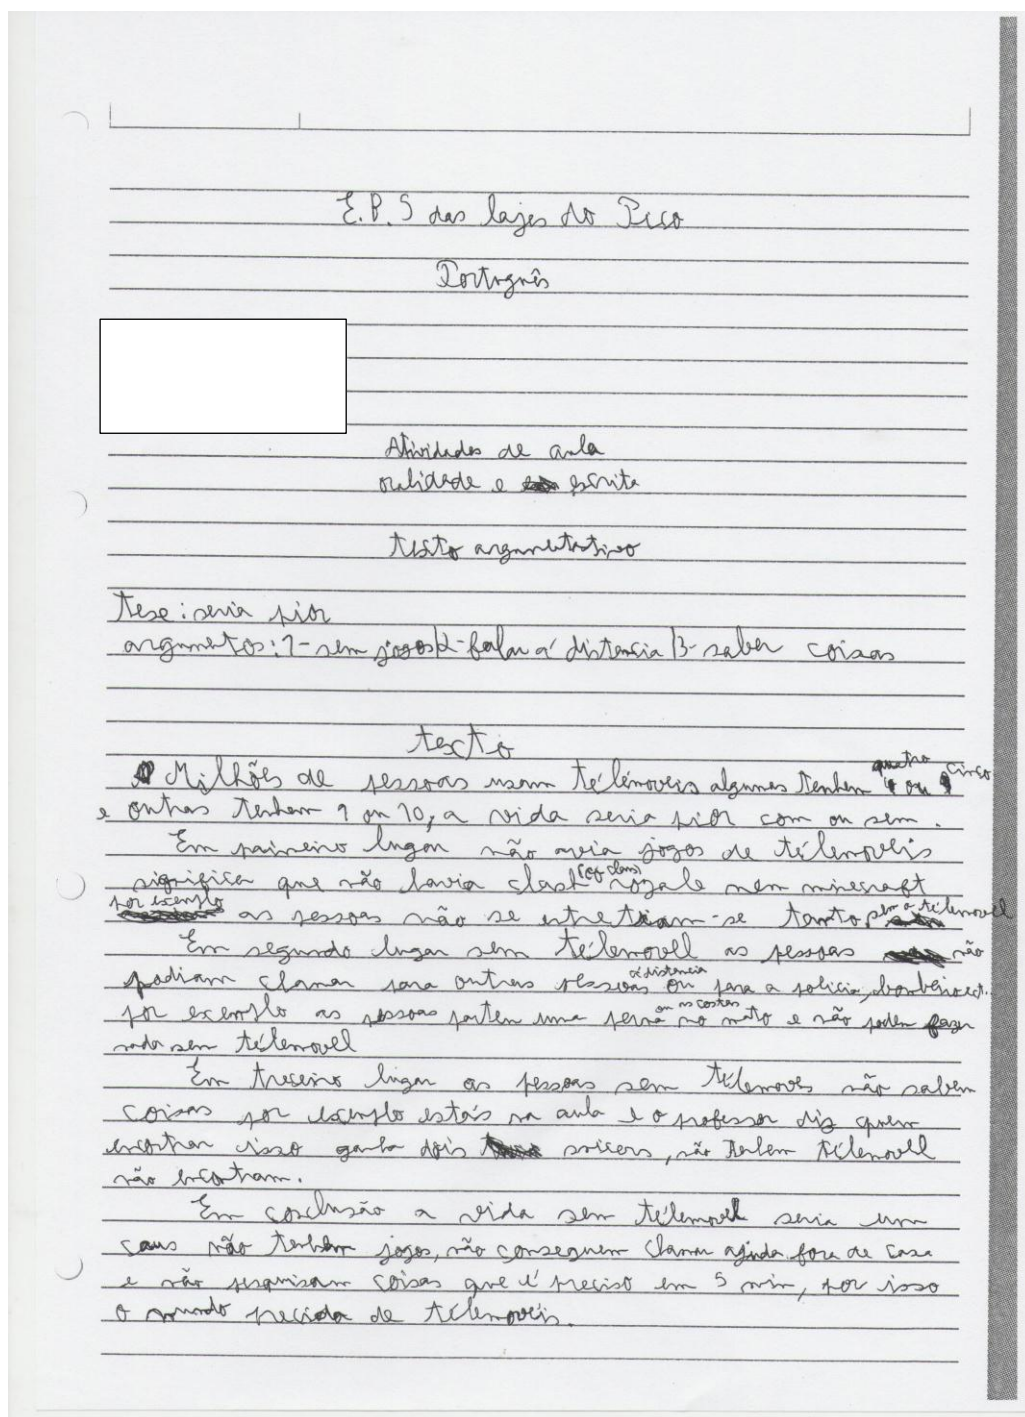 E.B.S das lajes do Pico
Português
Atividades de aula
oralidade e escrita
texto argumentativo
Tese: seria pior
argumetos: 1- sem jogos/2-falar á distencia/3-saber coisas
texto
Milhões de pessoas usam télemoveis algumes tenhem quatro ou cinco
e outras tenhem 9 ou 10, a vida seria pior com ou sem.
Em primeiro lugar não avia jogos de télemovéis
significa que não havia clash (of clans) royale nem minecraft
por exemplo as pessoas não se entretiam-se tanto, sem o télemovel
Em segundo lugar sem télemovell as pessoas não
podiam chamar para outras pessoas á distencia ou para a policia, bombeiro ect.
por exemplo as pessoas partem uma perna ou as costas no mato e não podem fazer
nada sem télemovel
Em treceiro lugar as pessoas sem télemoves não sabem
coisas por exemplo estás na aula e o professor diz quem
encontrar isso ganha dois, não tenhem télemovell
não encontram.
Em cosclusão a vida sem télemovel seria um
caus não tenhem jogos, não conseguem chamar ajuda fora de casa
e não pesquisam coisas que é preciso em 5 min, por isso
o mundo precida de télemovéis.